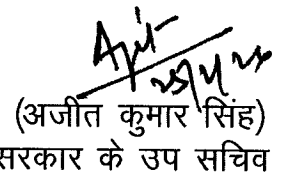 Ajit
(अजीत कुमार सिंह)
सरकार के उप सचिव